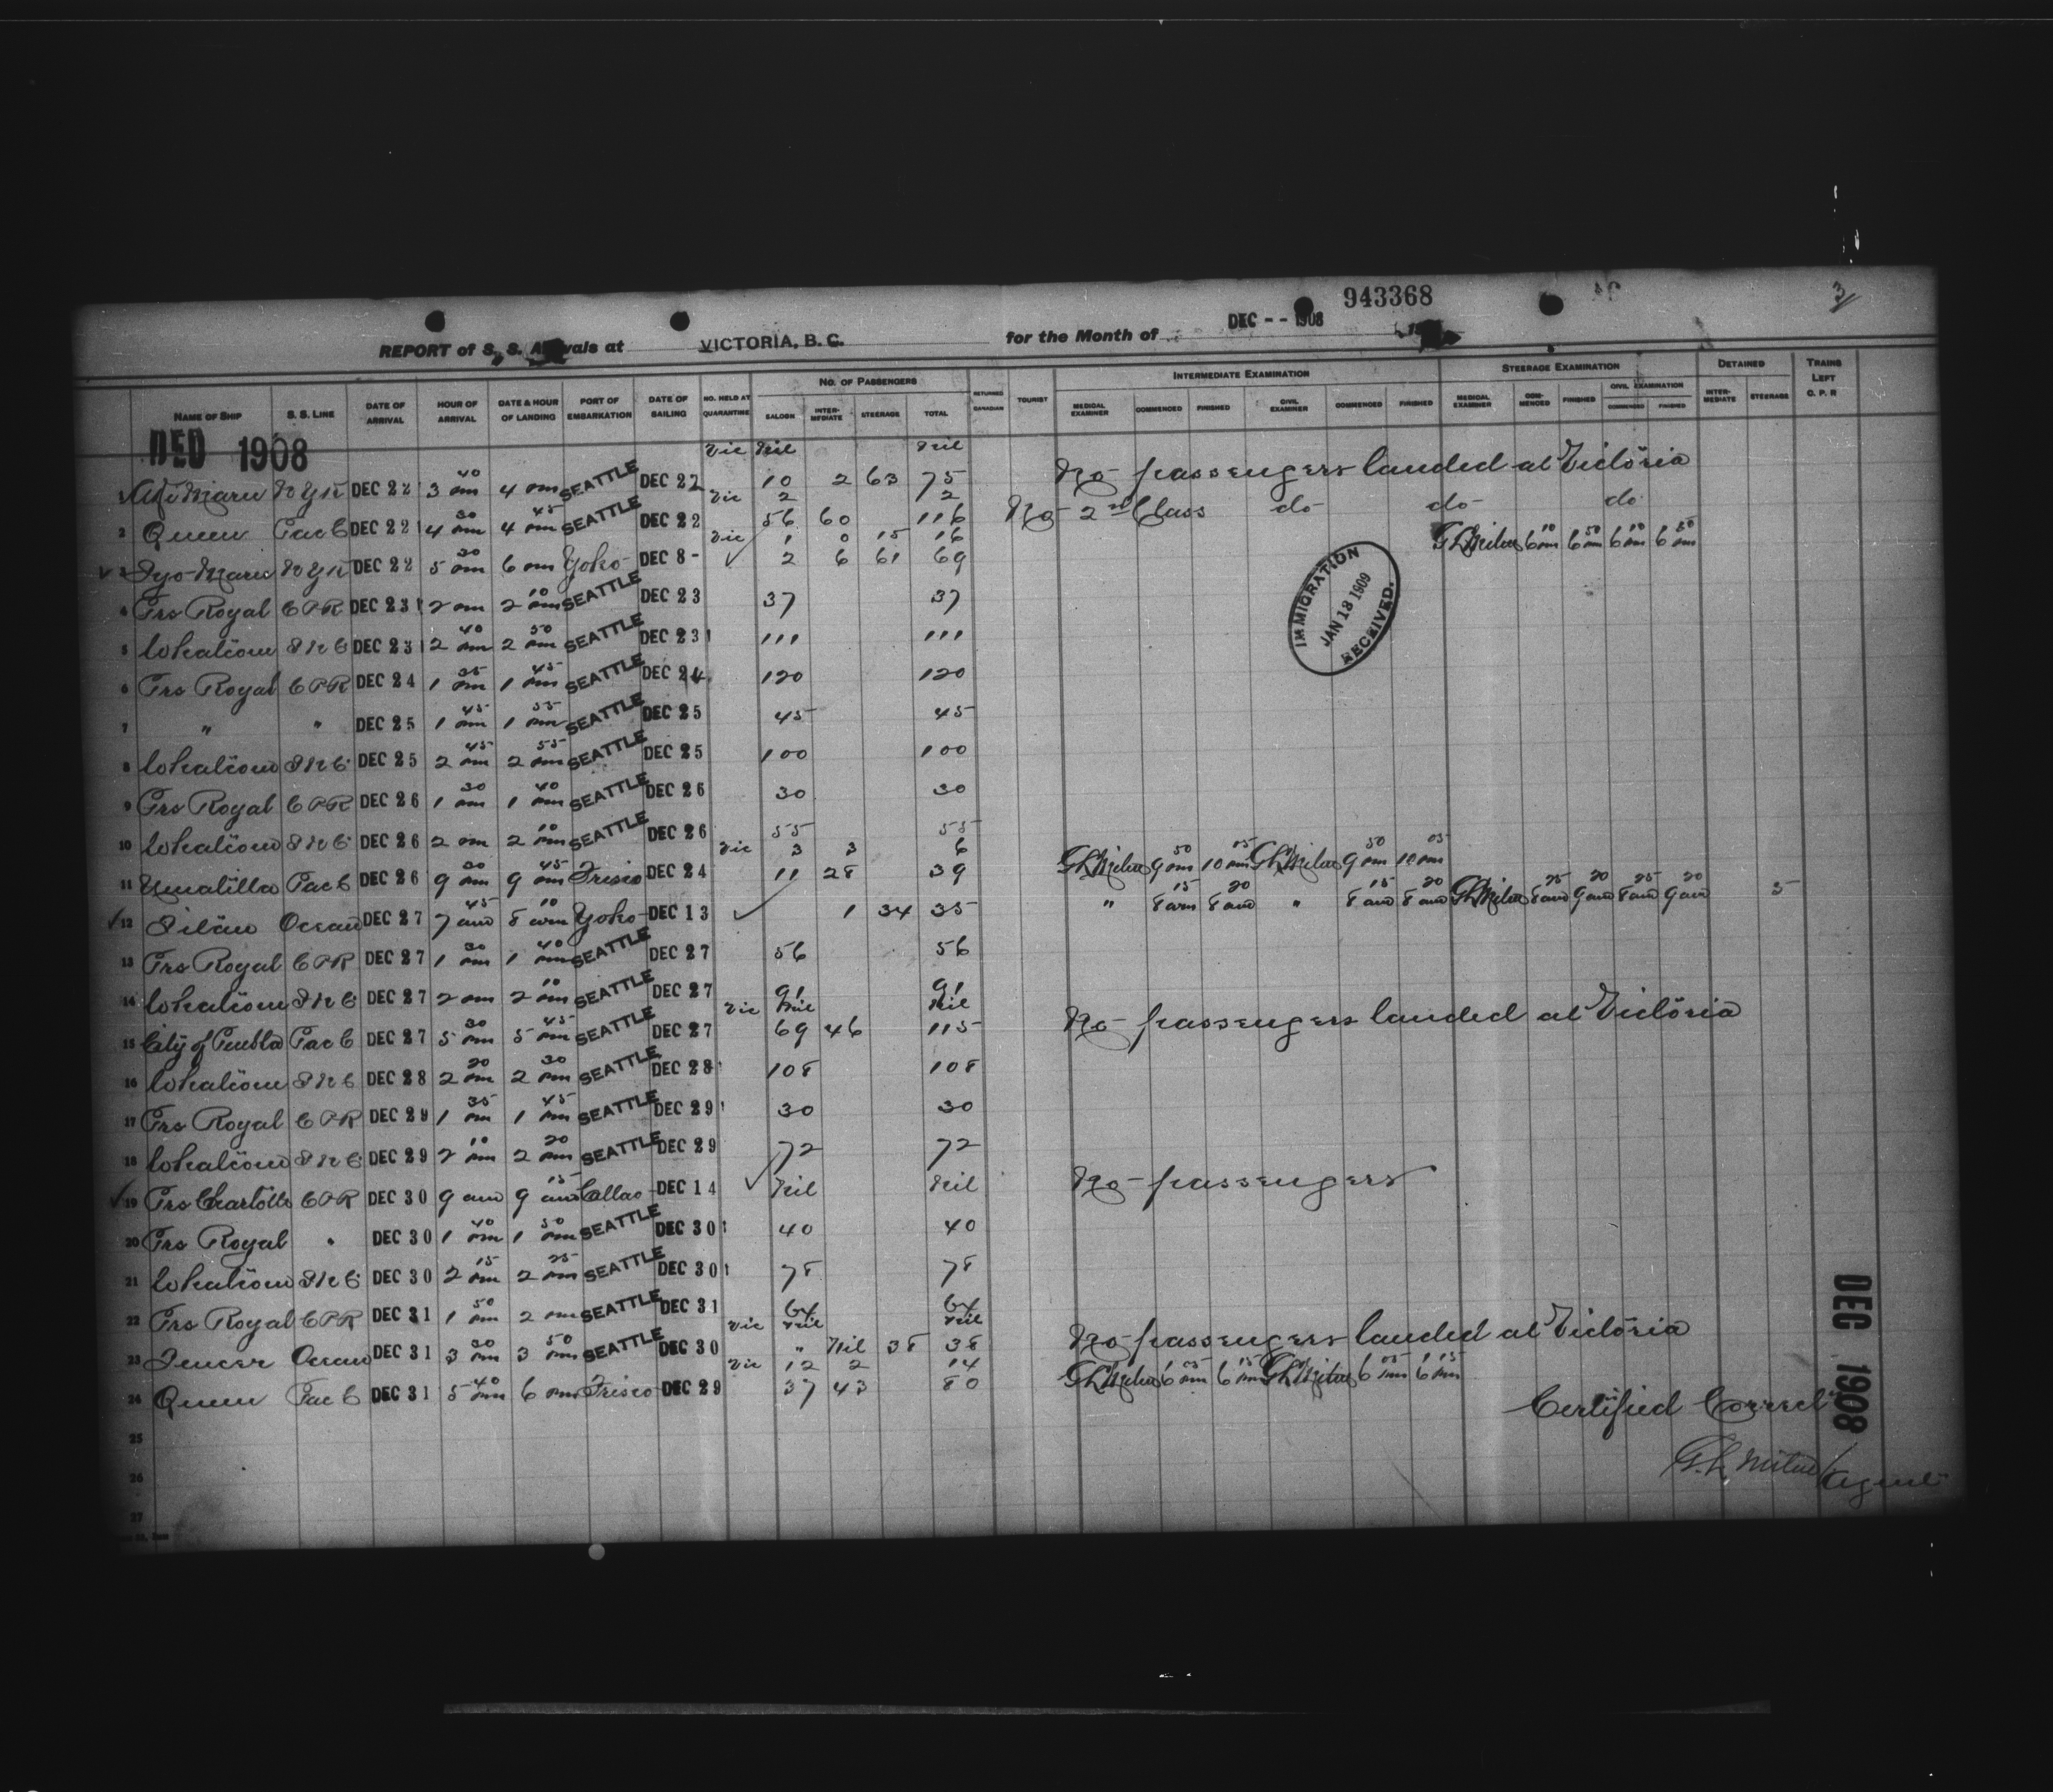 943368
3/
REPORT of S. S. Arrivals at VICTORIA, B. C. for the Month of DEC -- 1908
NAME OF SHIP S. S. LINE DATE OF ARRIVAL HOUR OF ARRIVAL DATE & HOUR OF LANDING PORT OF EMBARKATION DATE OF SAILING NO. HELD AT QUARANTINE NO. OF PASSENGERS SALOON INTERMEDIATE STEERAGE TOTAL RETURNED CANADIAN TOURIST INTERMEDIATE EXAMINATION MEDICAL EXAMINER COMMENCED FINISHED CIVIL EXAMINER COMMENCED FINISHED STEERAGE EXAMINATION MEDICAL EXAMINER COMMENCED FINISHED CIVIL EXAMINATION COMMENCED FINISHED DETAINED INTERMEDIATE STEERAGE TRAINS LEFT C. P. R
DEC 1908
Vic Nil Nil
1 Aki Maru N Y K DEC 22 3 40 pm 4 pm SEATTLE DEC 22 10 2 63 75 No passengers landed at Victoria
Vic 2 2
2 Queen Pac C DEC 22 4 30 pm 4 45 pm SEATTLE DEC 22 56 60 116 No 2nd Class do do do
Vic 1 0 15 16
3 Iyo Maru N Y K DEC 22 5 30 pm 6 pm Yoko DEC 8 2 6 61 69 G L Milne 6 10 pm 6 50 pm 6 10 pm 6 50 pm
4 Prs Royal C P R DEC 23 2 pm 2 10 pm SEATTLE DEC 23 37 37
5 Whatcom S N C DEC 23 2 40 pm 2 50 pm SEATTLE DEC 23 111 111
6 Prs Royal C P R DEC 24 1 35 pm 1 45 pm SEATTLE DEC 24 120 120
7 " " DEC 25 1 45 pm 1 55 pm SEATTLE DEC 25 45 45
8 Whatcom S N C DEC 25 2 45 pm 2 55 pm SEATTLE DEC 25 100 100
9 Prs Royal C P R DEC 26 1 30 pm 1 40 pm SEATTLE DEC 26 30 30
10 Whatcom S N C DEC 26 2 pm 2 10 pm SEATTLE DEC 26 55 55
Vic 3 3 6
11 Umatilla Pac C DEC 26 9 30 pm 9 45 pm Frisco DEC 24 11 28 39 G L Milne 9 50 pm 10 05 pm G L Milne 9 50 pm 10 05 pm
12 Ocean DEC 27 7 45 am 8 10 am Yoko DEC 13 1 34 35 " 8 15 am 8 20 am " 8 15 am 8 20 am G L Milne 8 25 am 9 20 am 8 25 am 9 20 am 5
13 Prs Royal C P R DEC 27 1 30 pm 1 40 pm SEATTLE DEC 27 56 56
14 Whatcom S N C DEC 27 2 pm 2 10 pm SEATTLE DEC 27 91 91
Vic Nil Nil
15 City of Puebla Pac C DEC 27 5 30 pm 5 45 pm SEATTLE DEC 27 69 46 115 No passengers landed at Victoria
16 Whatcom S N C DEC 28 2 20 pm 2 30 pm SEATTLE DEC 28 108 108
17 Prs Royal C P R DEC 29 1 35 pm 1 45 pm SEATTLE DEC 29 30 30
18 Whatcom S N C DEC 29 2 10 pm 2 20 pm SEATTLE DEC 29 72 72
19 Prs Charlotte C P R DEC 30 9 am 9 15 am Callao DEC 14 Nil Nil No passengers
20 Prs Royal " DEC 30 1 40 pm 1 50 pm SEATTLE DEC 30 40 40
21 Whatcom S N C DEC 30 2 15 pm 2 25 pm SEATTLE DEC 30 78 78
22 Prs Royal C P R DEC 31 1 50 pm 2 pm SEATTLE DEC 31 64 64
Vic Nil Nil
23 Teucer Ocean DEC 31 3 30 pm 3 50 pm SEATTLE DEC 30 " Nil 38 38 No passengers landed at Victoria
Vic 12 2 14
24 Queen Pac C DEC 31 5 40 pm 6 pm Frisco DEC 29 37 43 80 G L Milne 6 05 pm 6 15 pm G L Milne 6 05 pm 6 15 pm
25
26
27
Certified Correct
G. L. Milne / Agent
IMMIGRATION
JAN 18 1909
RECEIVED.
DEC 1908